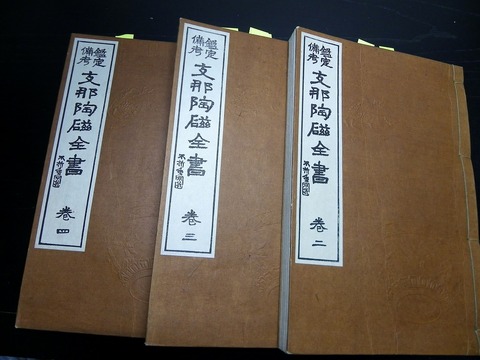 鑑定
備考
支那陶磁全書
卷二
鑑定
備考
支那陶磁全書
卷三
鑑定
備考
支那陶磁全書
卷四